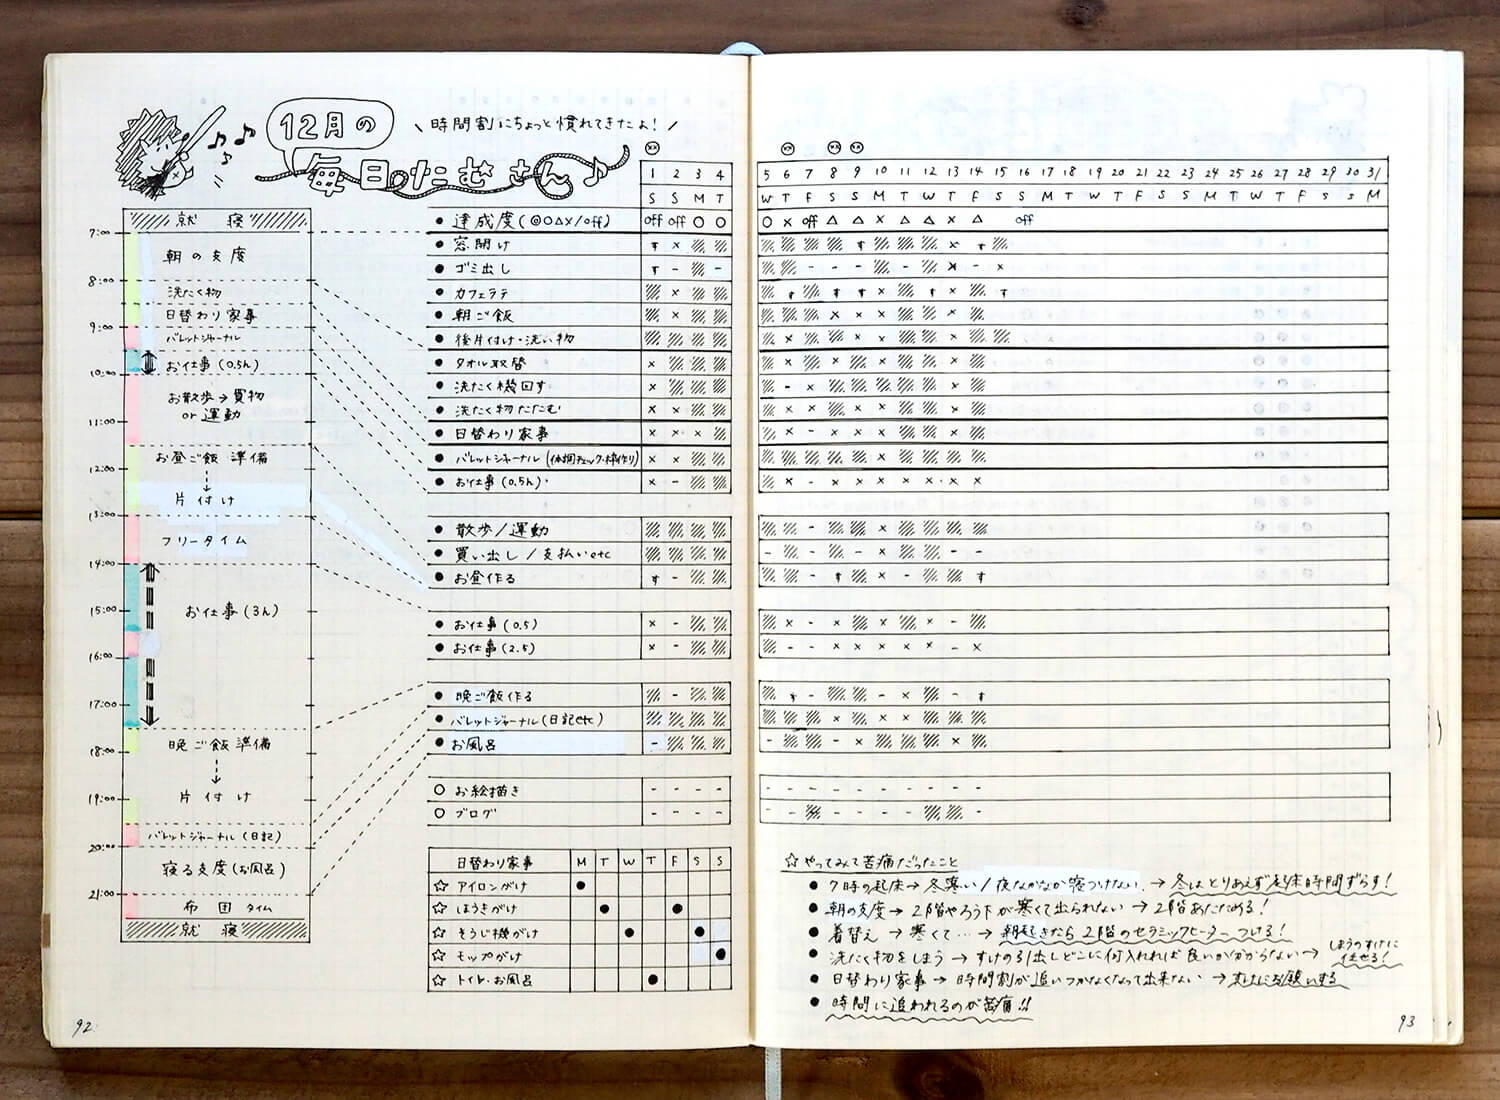 12月の
毎日のたむさん♪
\ 時間割にちょっと慣れてきたよ! /
就 寝
7:00
朝の支度
8:00
洗たく物
日替わり家事
9:00
バレットジャーナル
お仕事(0.5h)
10:00
お散歩→買物
or 運動
11:00
お昼ご飯 準備
12:00
片付け
13:00
フリータイム
14:00
お仕事(3h)
15:00
16:00
17:00
晩ご飯 準備
18:00
片付け
19:00
バレットジャーナル(日記)
20:00
寝る支度(お風呂)
21:00
布団タイム
就 寝
1 2 3 4 5 6 7 8 9 10 11 12 13 14 15 16 17 18 19 20 21 22 23 24 25 26 27 28 29 30 31
S S M T W T F S S M T W T F S S M T W T F S S M T W T F S S M
● 達成度(◎○△×/off) off off ○ ○ ○ × off △ △ × △ △ × △ off
● 窓開け
● ゴミ出し
● カフェラテ
● 朝ご飯
● 後片付け・洗い物
● タオル取替
● 洗たく機回す
● 洗たく物たたむ
● 日替わり家事
● バレットジャーナル(体調チェック・枠作り)
● お仕事(0.5h)
● 散歩/運動
● 買い出し/支払いetc
● お昼作る
● お仕事(0.5)
● お仕事(2.5)
● 晩ご飯作る
● バレットジャーナル(日記etc)
● お風呂
○ お絵描き
○ ブログ
日替わり家事 M T W T F S S
☆ アイロンがけ ●
☆ ほうきがけ ● ●
☆ そうじ機がけ ● ●
☆ モップがけ ●
☆ トイレ・お風呂 ●
92
☆やってみて苦痛だったこと
● 7時の起床→冬寒い/夜なかなか寝つけない。→冬はとりあえず起床時間ずらす!
● 朝の支度→2階やろう下が寒くて出られない→2階あたためる!
● 着替え→寒くて…→朝起きたら2階のセラミックヒーターつける!
● 洗たく物をしまう→すけの引出しどこに何入れれば良いか分からない→しまうのすけに任せる!
● 日替わり家事→時間割が追いつかなくなって出来ない→すけにお願いする
● 時間に追われるのが苦痛!!
93